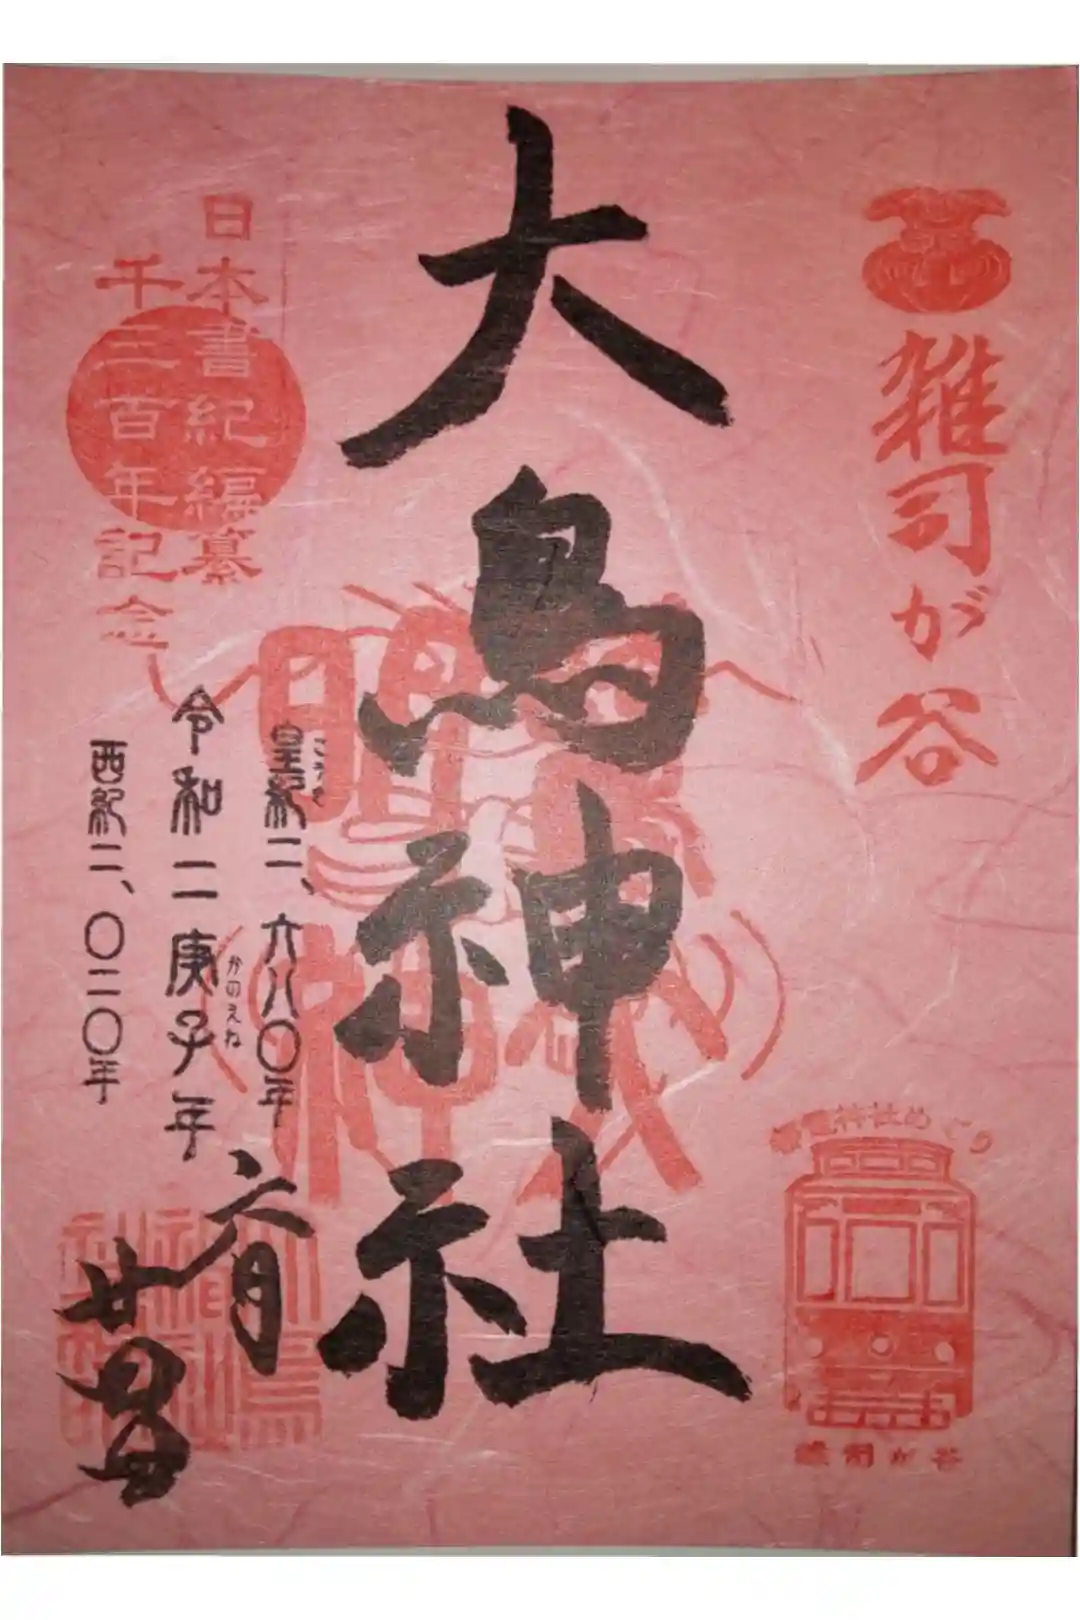 雑司が谷
神社めぐり
雑司が谷
大鳥神社
皇紀二、六八〇年
こうき
令和二庚子年
かのえね
西紀二、〇二〇年
六月
日本書紀編纂
千三百年記念